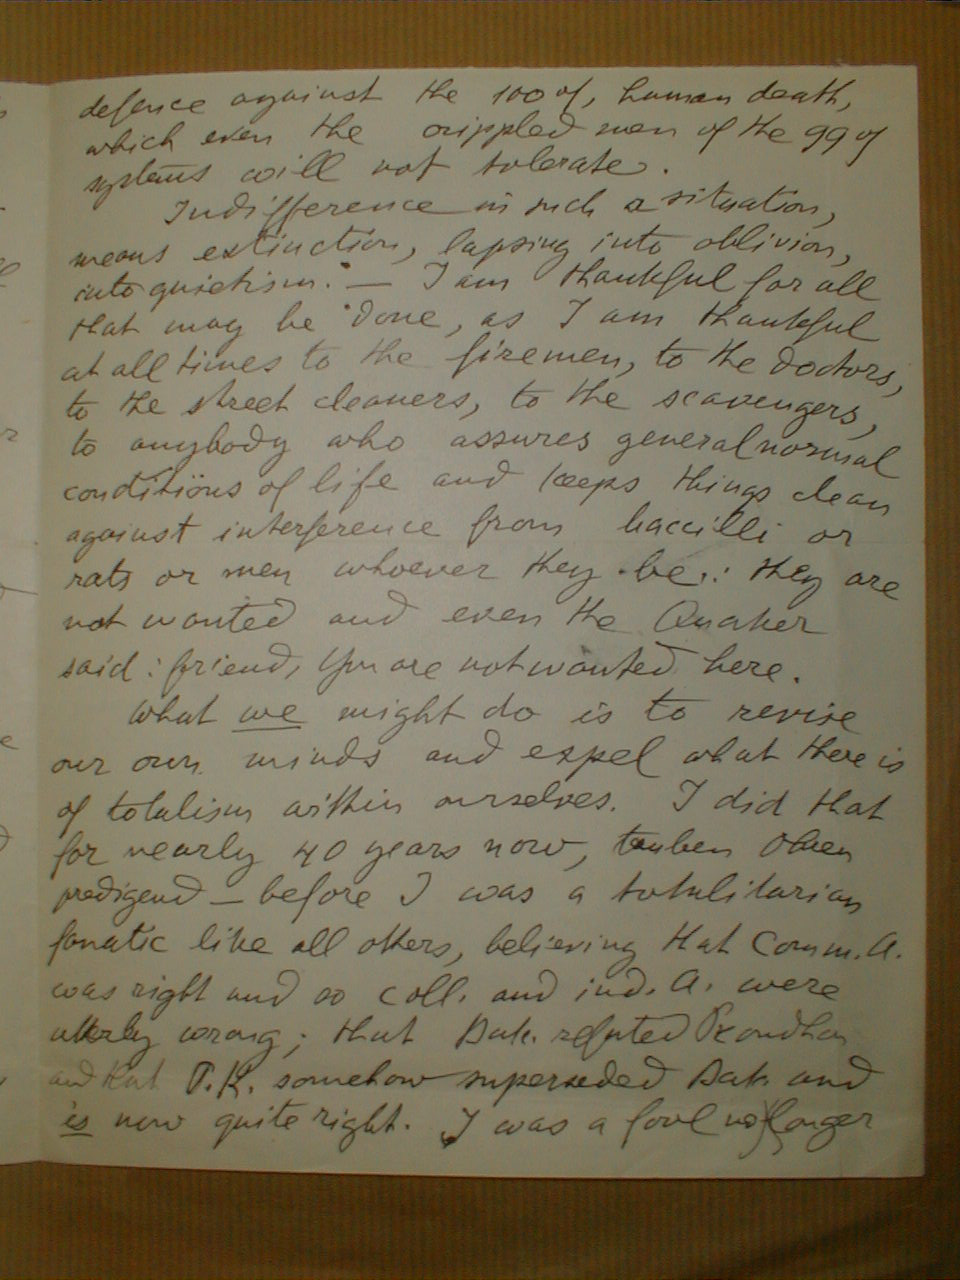 defence against the 100 %, human death,
which even the crippled men of the 99 %
systems will not tolerate.
Indifference in such a situation,
means extinction, lapsing into oblivion,
into quietism. — I am thankful for all
that may be done, as I am thankful
at all times to the firemen, to the doctors,
to the street cleaners, to the scavengers,
to anybody who assures general normal
conditions of life and keeps things clean
against interference from baccilli or
rats or men whoever they be: they are
not wanted and even the Quaker
said: friend, you are not wanted here.
What we might do is to revise
our own minds and expel what there is
of totalism within ourselves. I did that
for nearly 40 years now, tauben Ohren
predigend — before I was a totalitarian
fanatic like all others, believing that Comm. A.
was right and so coll. and ind. A. were
utterly wrong; that Bak. refuted Proudhon
and that P.K. somehow superseded Bak. and
is now quite right. I was a fool no longer